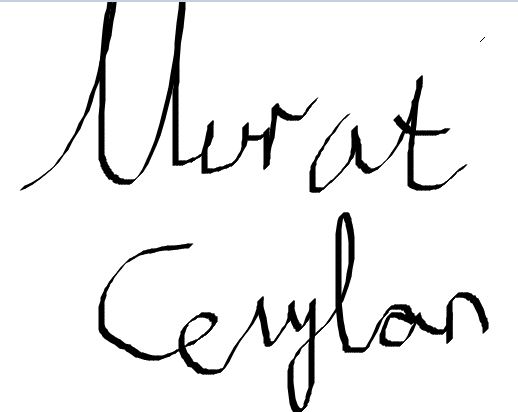 Murat
Ceylan